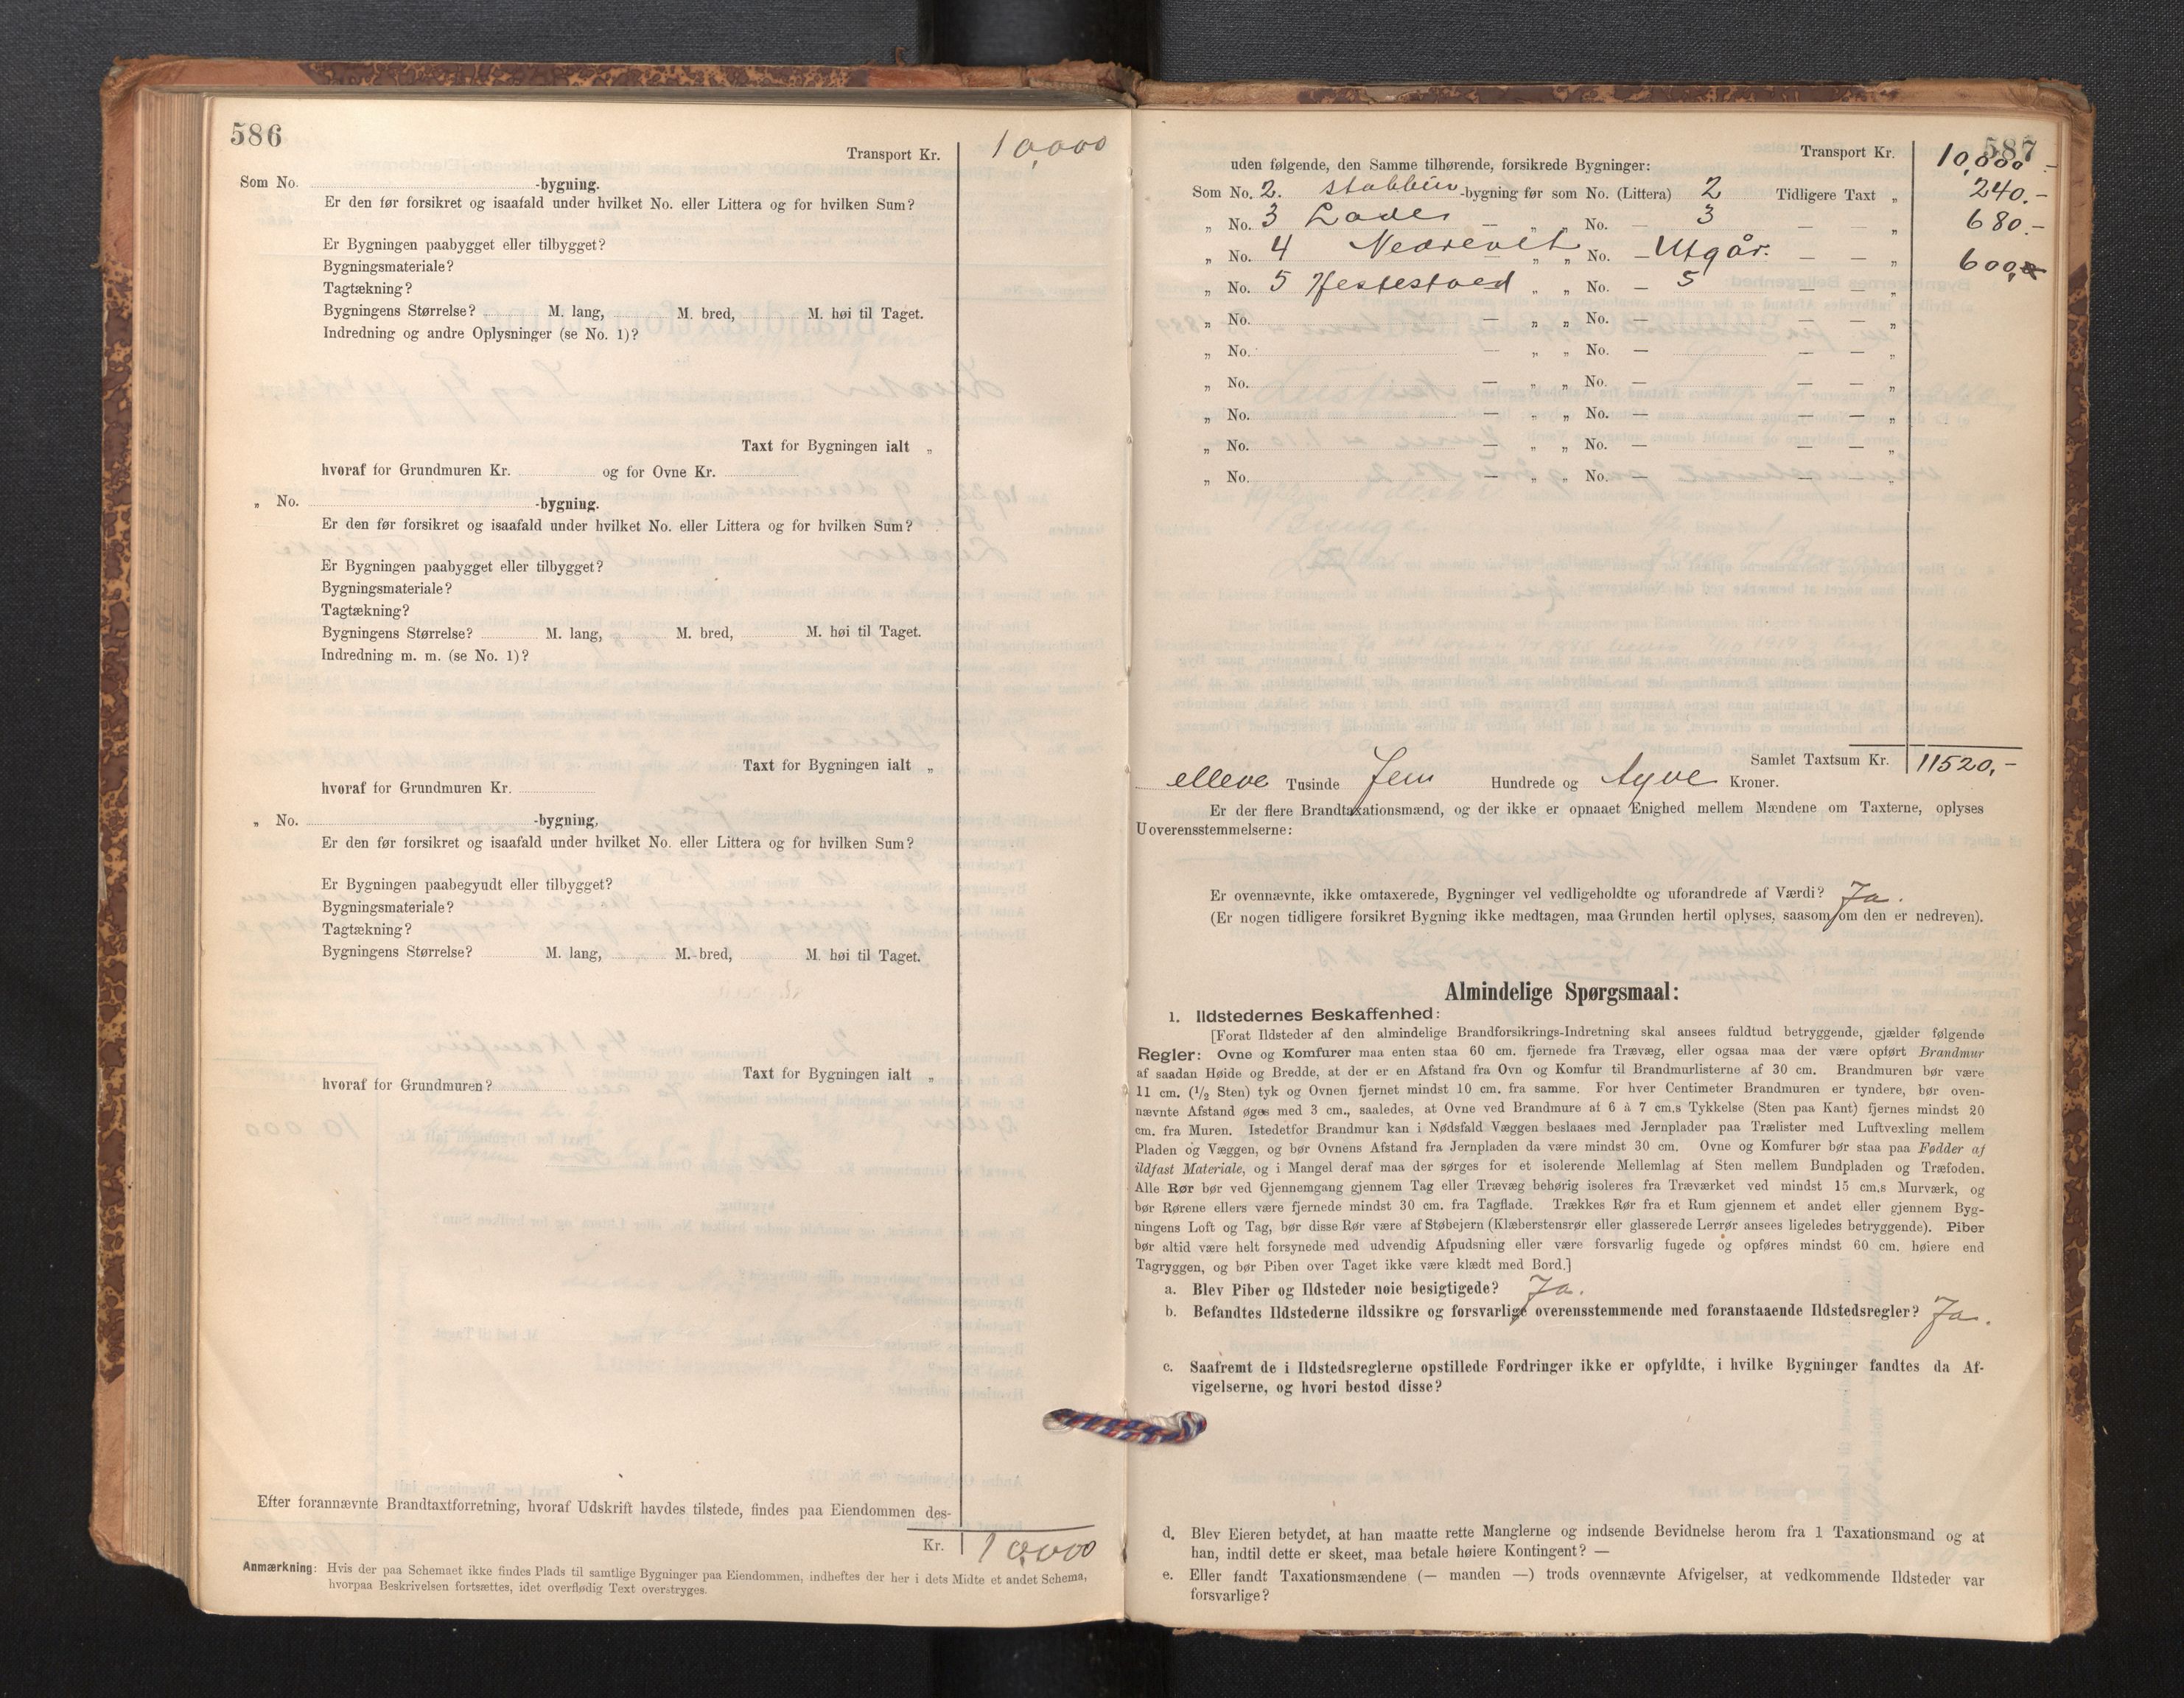 586
Transport Kr. 10,000
Som No. -bygning.
Er den før forsikret og isaafald under hvilket No. eller Littera og for hvilken Sum?
Er Bygningen paabygget eller tilbygget?
Bygningsmateriale?
Tagtækning?
Bygningens Størrelse? M. lang, M. bred, M. høi til Taget.
Indredning og andre Oplysninger (se No. 1)?
Taxt for Bygningen ialt „
hvoraf for Grundmuren Kr. og for Ovne Kr.
„ No. -bygning.
Er den før forsikret og isaafald under hvilket No. eller Littera og for hvilken Sum?
Er Bygningen paabygget eller tilbygget?
Bygningsmateriale?
Tagtækning?
Bygningens Størrelse? M. lang, M. bred, M. høi til Taget.
Indredning m. m. (se No. 1)?
Taxt for Bygningen ialt „
hvoraf for Grundmuren Kr.
„ No. -bygning,
Er den før forsikret og isaafald under hvilket No. eller Littera og for hvilken Sum?
Er Bygningen paabegyudt eller tilbygget?
Bygningsmateriale?
Tagtækning?
Bygningens Størrelse? M. lang, M. bred, M. høi til Taget.
Taxt for Bygningen ialt „
hvoraf for Grundmuren?
Efter forannævnte Brandtaxtforretning, hvoraf Udskrift havdes tilstede, findes paa Eiendommen des-
Kr. 10,000
Anmærkning: Hvis der paa Schemaet ikke findes Plads til samtlige Bygninger paa Eiendommen, indheftes der her i dets Midte et andet Schema,
hvorpaa Beskrivelsen fortsættes, idet overflødig Text overstryges.
587
Transport Kr. 10,000 -
uden følgende, den Samme tilhørende, forsikrede Bygninger:
Som No. 2. stabbur -bygning før som No. (Littera) 2 Tidligere Taxt „ 240.-
„ No. 3 Lade — „ „ No. — 3 — — „ 680.-
„ No. 4 — „ „ No. — Utgår. — — „
„ No. 5 „ „ No. — 5 — — „ 600,
„ No. — „ „ No. — — — „
„ No. — „ „ No. — — — „
„ No. — „ „ No. — — — „
„ No. — „ „ No. — — — „
„ No. — „ „ No. — — — „
„ No. — „ „ No. — — — „
Samlet Taxtsum Kr. 11520,-
elleve Tusinde fem Hundrede og tyve Kroner.
Er der flere Brandtaxationsmænd, og der ikke er opnaaet Enighed mellem Mændene om Taxterne, oplyses
Uoverensstemmelserne:
Er ovennævnte, ikke omtaxerede, Bygninger vel vedligeholdte og uforandrede af Værdi? Ja.
(Er nogen tidligere forsikret Bygning ikke medtagen, maa Grunden hertil oplyses, saasom om den er nedreven).
Almindelige Spørgsmaal:
1. Ildstedernes Beskaffenhed:
[Forat Ildsteder af den almindelige Brandforsikrings-Indretning skal ansees fuldtud betryggende, gjælder følgende
Regler: Ovne og Komfurer maa enten staa 60 cm. fjernede fra Trævæg, eller ogsaa maa der være opført Brandmur
af saadan Høide og Bredde, at der er en Afstand fra Ovn og Komfur til Brandmurlisterne af 30 cm. Brandmuren bør være
11 cm. (1/2 Sten) tyk og Ovnen fjernet mindst 10 cm. fra samme. For hver Centimeter Brandmuren er tyndere, bør oven-
nævnte Afstand øges med 3 cm., saaledes, at Ovne ved Brandmure af 6 à 7 cm.s Tykkelse (Sten paa Kant) fjernes mindst 20
cm. fra Muren. Istedetfor Brandmur kan i Nødsfald Væggen beslaaes med Jernplader paa Trælister med Luftvexling mellem
Pladen og Væggen, og bør Ovnens Afstand fra Jernpladen da være mindst 30 cm. Ovne og Komfurer bør staa paa Fødder af
ildfast Materiale, og i Mangel deraf maa der sørges for et isolerende Mellemlag af Sten mellem Bundpladen og Træfoden.
Alle Rør bør ved Gjennemgang gjennem Tag eller Trævæg behørig isoleres fra Træværket ved mindst 15 cm.s Murværk, og
bør Rørene ellers være fjernede mindst 30 cm. fra Tagflade. Trækkes Rør fra et Rum gjennem et andet eller gjennem Byg-
ningens Loft og Tag, bør disse Rør være af Støbejern (Klæberstensrør eller glasserede Lerrør ansees ligeledes betryggende). Piber
bør altid være helt forsynede med udvendig Afpudsning eller være forsvarlig fugede og opføres mindst 60 cm. høiere end
Tagryggen, og bør Piben over Taget ikke være klædt med Bord.]
a. Blev Piber og Ildsteder nøie besigtigede? Ja.
b. Befandtes Ildstederne ildssikre og forsvarlige overensstemmende med foranstaaende Ildstedsregler? Ja.
c. Saafremt de i Ildstedsreglerne opstillede Fordringer ikke er opfyldte, i hvilke Bygninger fandtes da Af-
vigelserne, og hvori bestod disse?
d. Blev Eieren betydet, at han maatte rette Manglerne og indsende Bevidnelse herom fra 1 Taxationsmand og at
han, indtil dette er skeet, maa betale høiere Kontingent? —
e. Eller fandt Taxationsmændene (— manden —) trods ovennævnte Afvigelser, at vedkommende Ildsteder var
forsvarlige?